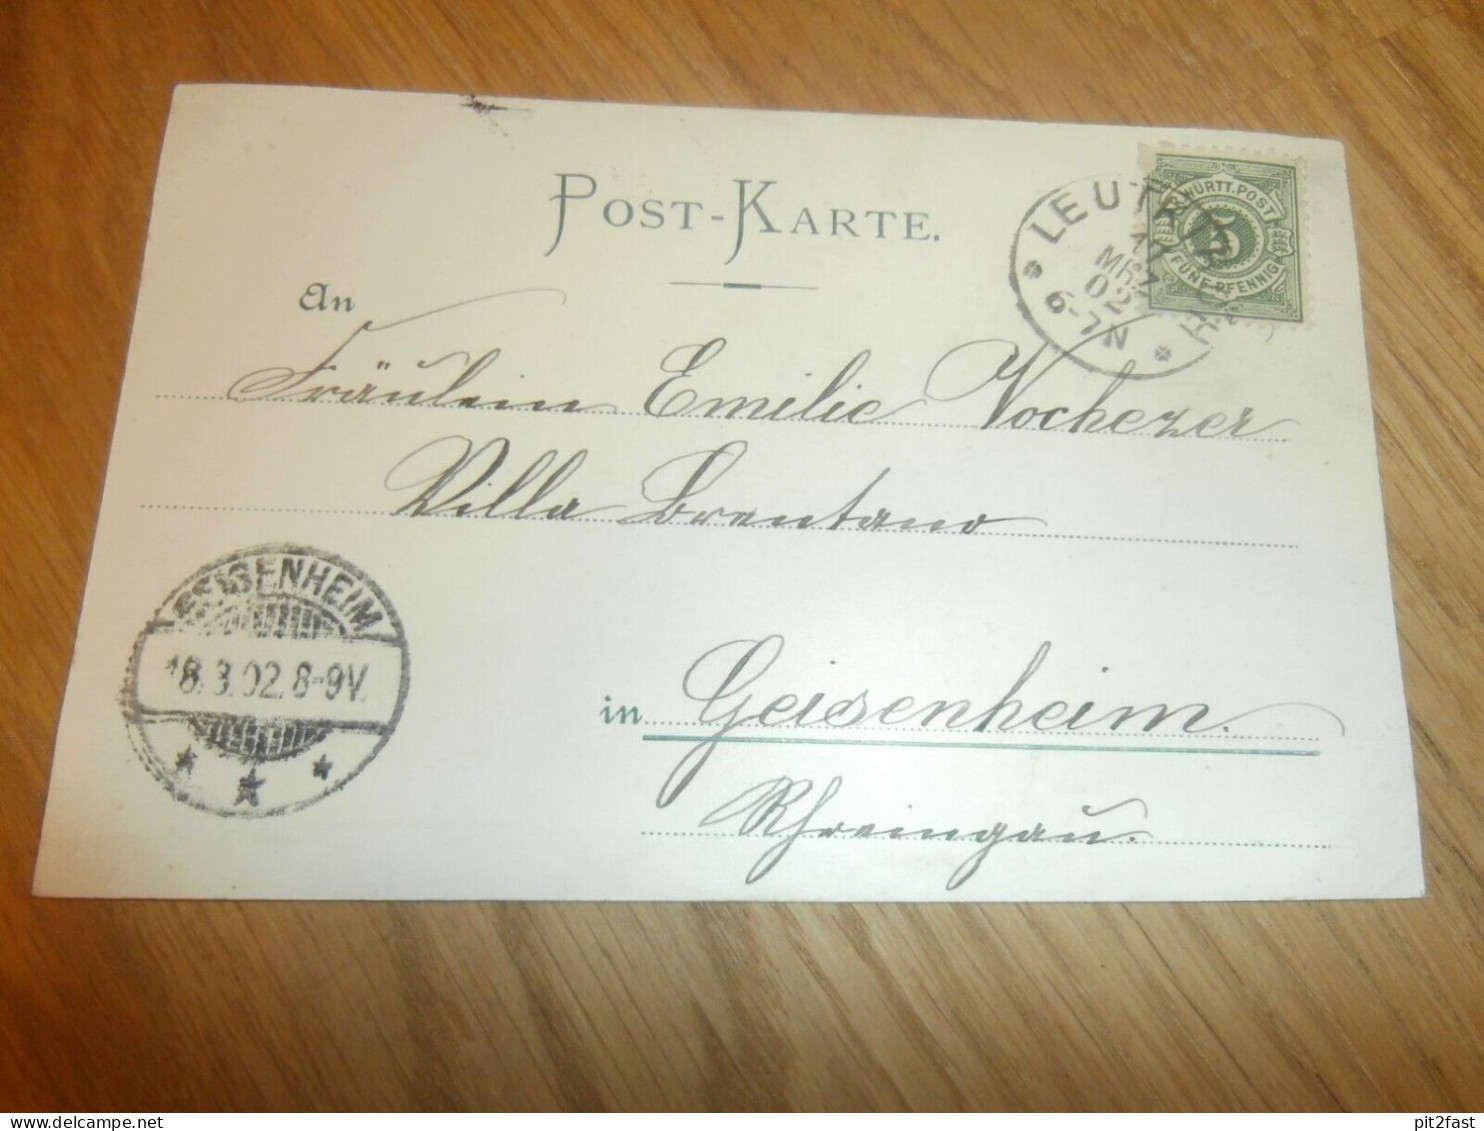 POST-KARTE.
An
Fräulein Emilie Vochezer
Villa Brentano
in Geisenheim.
Rheingau.
LEUTKIRCH
17
MRZ
02
6-7N
WÜRTT. POST
5
FÜNF PFENNIG
GEISENHEIM
18.3.02. 8-9V.
pit2fast